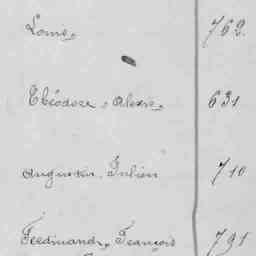 Louis. 762.
Théodore, Alexre. 631
Augustin, Julien 710
Ferdinand, François 791